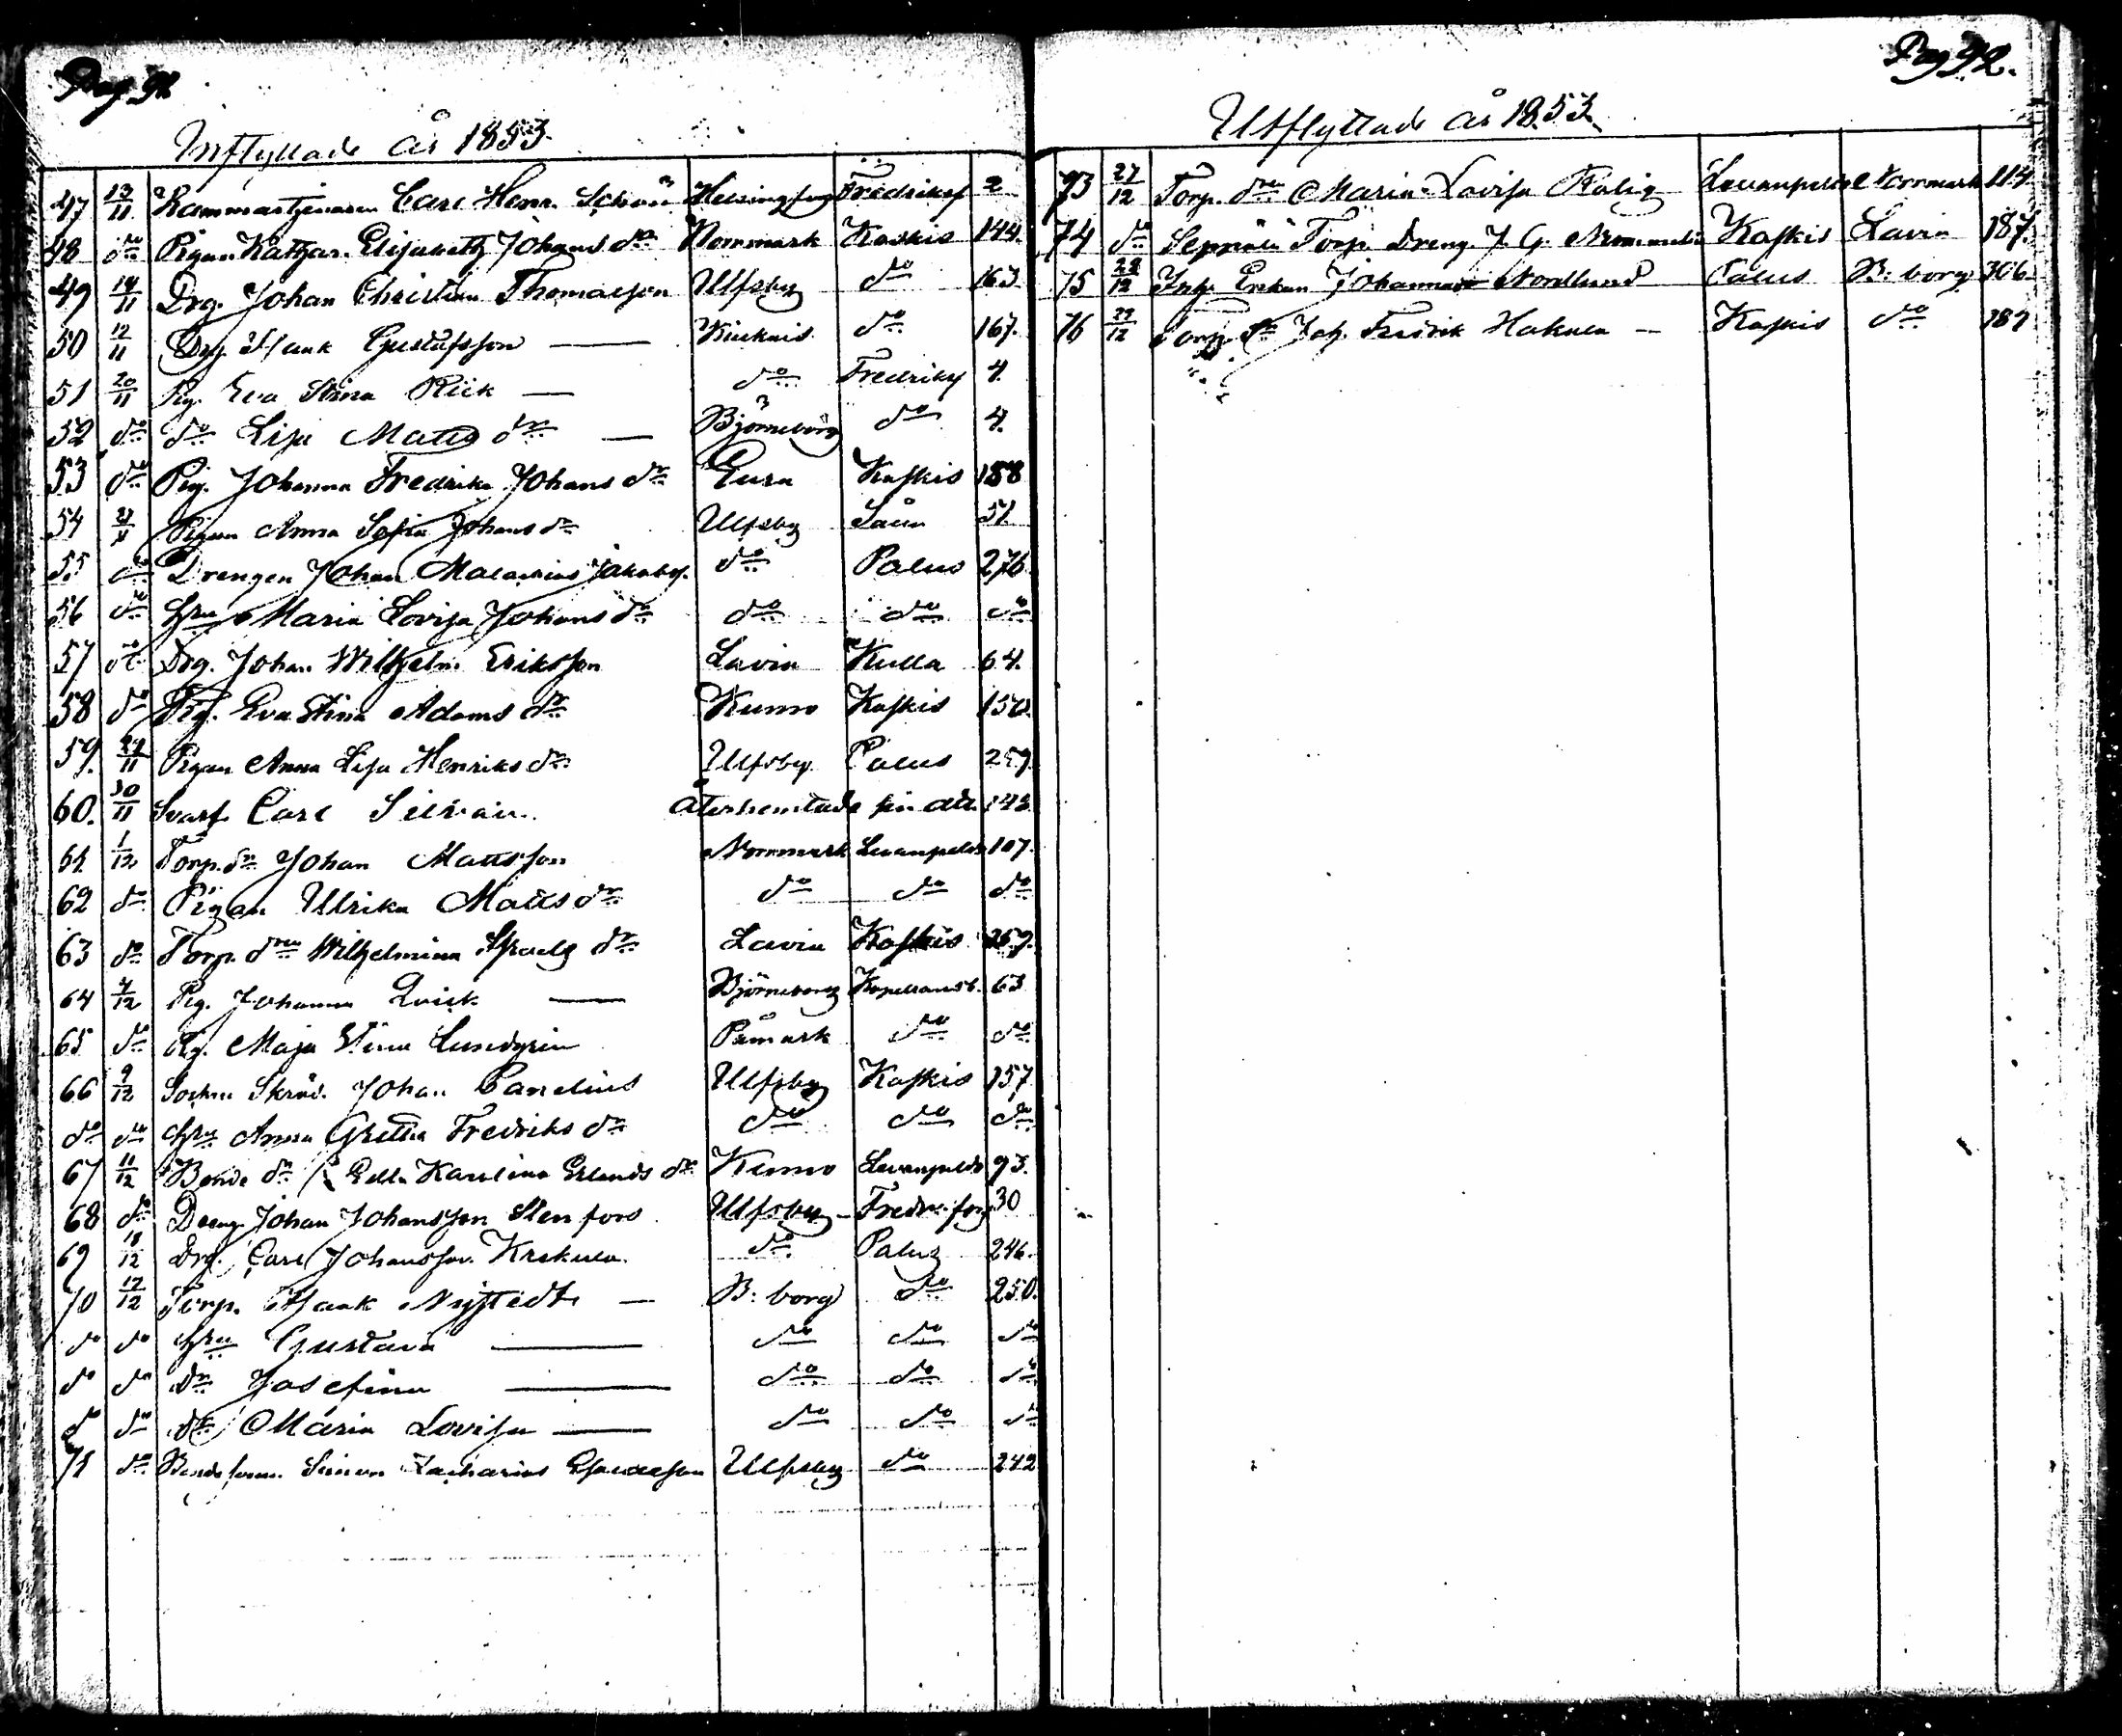 Pag 91
Inflyttade år 1853.
47 13/11 Kammartjenaren Carl Henr. Helsingfors Fredriksf 2
48 do Pigan Kathar. Elisabeth Johans dr Norrmark Kaskis 144.
49 14/11 Drg. Johan Christian Thomasson Ulfsby do 163
50 12/11 Drg. Isaak Gustafsson — Kiukais do 167.
51 20/11 Pig. Eva Stina Rick — do Fredriksf 4.
52 do do Lisa Matts dr — Björneborg do 4.
53 do Pig. Johanna Fredrika Johans dr Eura Kaskis 188
54 Pigan Anna Sofia Johans dr Ulfsby 51
55 do Drengen Johan Malakias Jakobss. do Palus 276
56 do Hru Maria Lovisa Johans dr do do do
57 do Drg. Johan Wilhelm Eriksson Lavia Kulla 64.
58 do Pig. Eva Stina Adams dr Kumo Kaskis 150.
59. 29/11 Pigan Anna Lisa Henriks dr Ulfsby Palus
60. 30/11 Svarf. Carl återhemtade sin att. 143
61. 1/12 Torp. dn Johan Mattsson Norrmark Levanpelto 107.
62 do Pigan Ulrika Matts dr do do do
63 do Torp. drn Wilhelmina dr Lavia Kaskis
64 4/12 Pig. Johanna Qvick — Björneborg Kapellansb. 63
65 do Pig. Maja Stina Lundgrin Påmark do do
66 9/12 Sockne Skräd. Johan Panelius Ulfsby Kaskis 157
do do Hru Anna Gretha Fredriks dr do do do
67 11/12 Bonde dr Edla Karolina Erlands dr Kumo Levanpelto 93.
68 do Dreng Johan Johansson Stenfors Ulfsby Fredriksf. 30
69 18/12 Drg. Carl Johansson Krekula do Palus 246.
70 17/12 Torp. Isaak Nystedt — B:borg do 250.
do do Hru Gustava — do do do
do do dr Josefina — do do do
do do dr Maria Lovisa — do do do
71 do Bondesonen Simon Zacharias Esaiasson Ulfsby do 242
Pag 92.
Utflyttade år 1853.
73 27/12 Torp. drn Maria Lovisa Rolig Levanpelto Norrmark 114
74 do Torp. Dreng J. G. Kaskis Lavia 187.
75 28/12 Inh. Enkan Johanna Nordlund Palus B:borg 306.
76 29/12 Torp. Sn Joh. Fredrik Hakula — Kaskis do 187